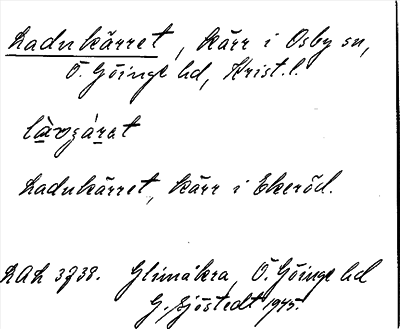 Ladukärret, kärr i Osby sn,
Ö. Göinge hd, Krist. l.
Ladukärret, kärr i Ekeröd.
DAL 3738. Glimåkra, Ö. Göinge hd
G. Sjöstedt 1945.